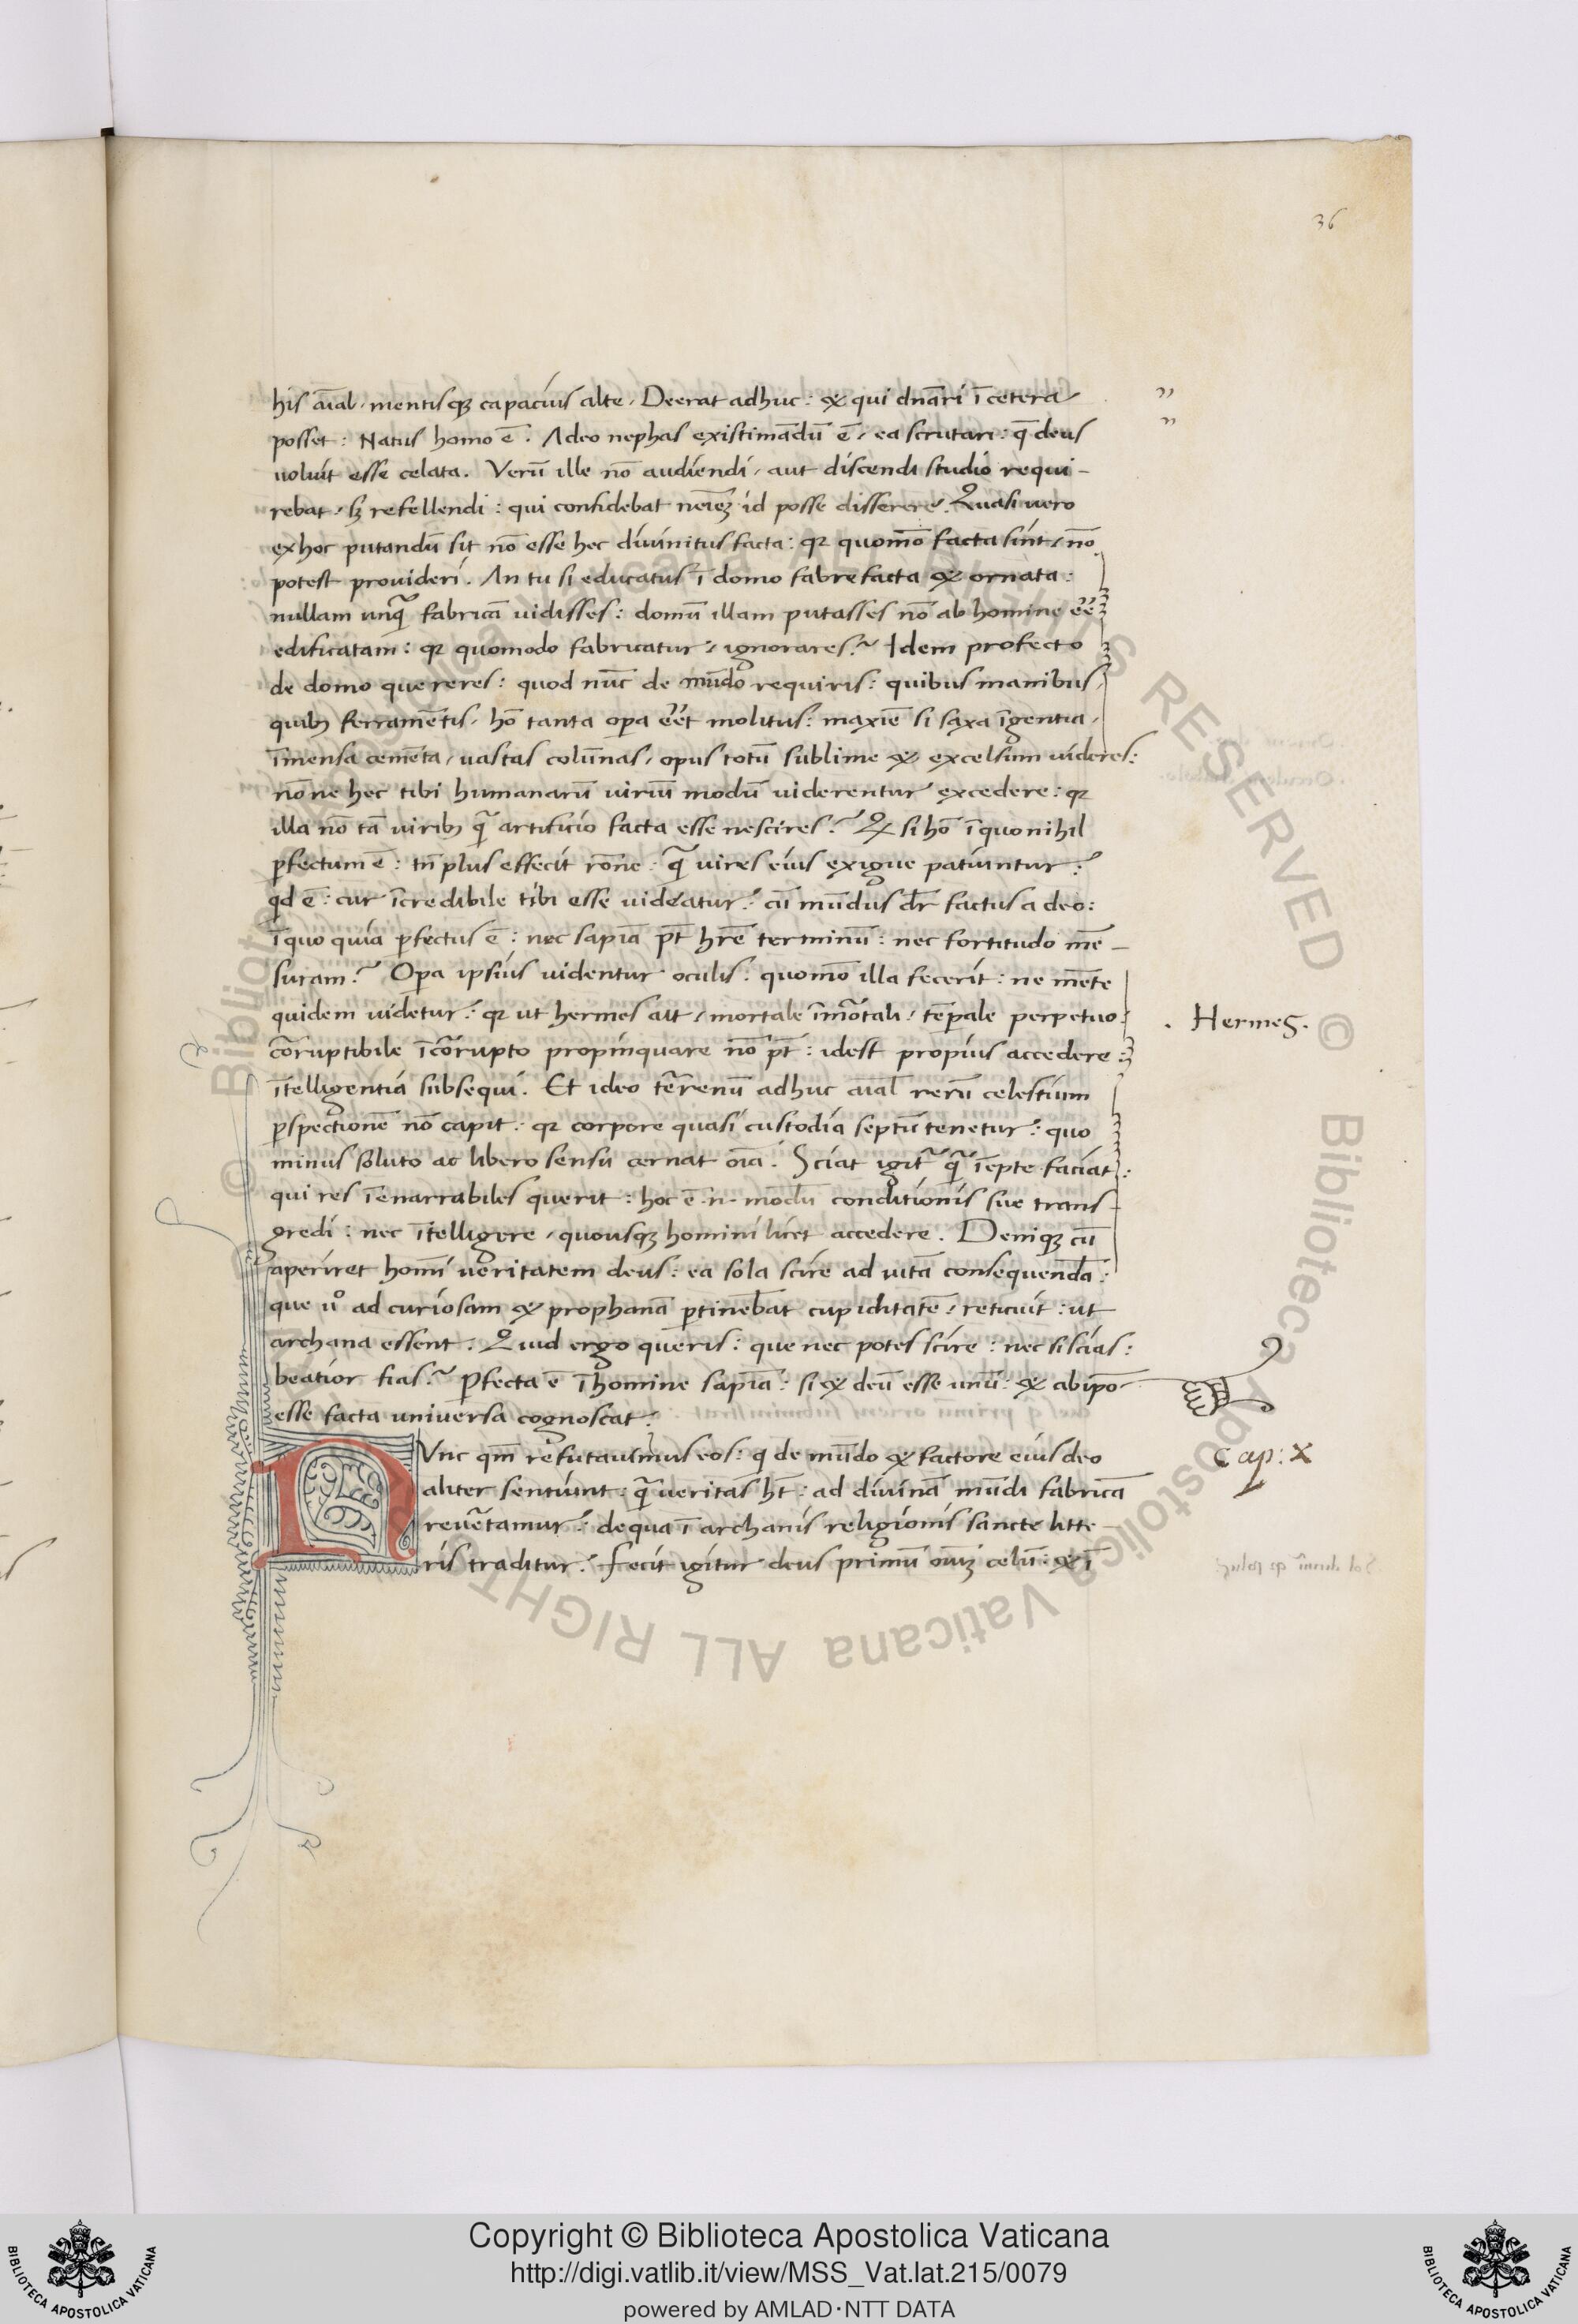 36
his aīal, mentisqꝫ capacius alte, Deerat adhuc: & qui dnāri ī cetera
posset: Natus homo ē. Adeo nephas existimādū ē, ea scrutari: q̄ deus
uoluit esse celata. Verū ille nō audiendi, aut discendi studio requi-
rebat, sꝫ refellendi: qui confidebat neīeꝫ id posse disserere. Quasi uero
ex hoc putandū sit nō esse hec diuinitus facta: qꝛ quomō facta sint, nō
potest prouideri. An tu si educatus ī domo fabrefacta & ornata:
nullam unq̄ fabricā uidisses: domū illam putasses nō ab homine eē
edificatam: qꝛ quomodo fabricatur, ignorares? Idem profecto
de domo quereres: quod nūc de mūdo requiris: quibus manibus,
quibꝫ ferramētis, hō tanta opa eēt molitus: maxīe si saxa īgentia,
īmensa cemēta, uastas colūnas, opus totū sublime & excelsum uideres:
nōne hec tibi humanarū uiriū modū uiderentur excedere: qꝛ
illa nō tā uiribꝫ q̄ artificio facta esse nescires? Qꝫ si hō ī quo nihil
ꝑfectum ē: tn̄ plus effecit rōne: q̄ uires eius exigue patiuntur?
qd ē: cur īcredibile tibi esse uideatur: cū mūdus dr̄ factus a deo:
ī quo quia ꝑfectus ē: nec sapīa pt̄ hr̄e terminū: nec fortitudo mē-
suram? Opa ipsius uidentur oculis: quomō illa fecerit: ne mēte
quidem uidetur: qꝛ ut hermes ait, mortale īmōtali, tēꝑale perpetuo,
cōruptibile īcōrupto propinquare nō pt̄: idest propius accedere:
ītelligentiā subsequi. Et ideo tērenū adhuc aīal rerū celestium
ꝑspectionē nō capit: qꝛ corpore quasi custodia septū tenetur: quo
minus soluto ac libero sensu cernat oīa. Sciat igit̄ q̄ īepte faciat:
qui res īenarrabiles querit: hoc ē .n. modū conditionis sue trans-
gredi: nec ītelligere, quousqꝫ homini licet accedere. Deniqꝫ cū
aperiret homī ueritatem deus: ea sola scire ad uitā consequendā:
que uº ad curiosam & prophanā ꝑtinebat cupiditatē, reticuit: ut
archana essent. Quid ergo queris: que nec potes scire: nec si scias:
beatior fias? Ꝑfecta ē ī homine sapīa: si & deū esse unū: & ab ipō
esse facta uniuersa cognoscat.
NVnc qm̄ refutauimus eos: q de mūdo & factore eius deo
aliter sentiunt: q̄ ueritas ht̄: ad diuinā mūdi fabricā
reuētamur: de qua ī archanis religionis sancte litte-
ris traditur. Fecit igitur deus primū oīuꝫ celū: & ī
Hermes.
Cap: X
Copyright © Biblioteca Apostolica Vaticana
http://digi.vatlib.it/view/MSS_Vat.lat.215/0079
powered by AMLAD·NTT DATA
BIBLIOTECA APOSTOLICA VATICANA
BIBLIOTECA APOSTOLICA VATICANA
© Biblioteca Apostolica Vaticana ALL RIGHTS RESERVED